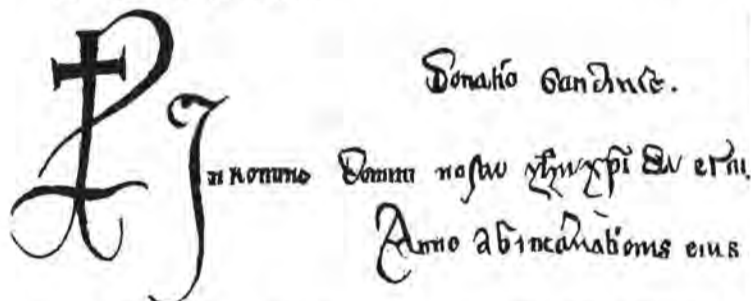 Donatio
In nomine Domini nostri yhu xpi Dei eterni
Anno ab incarnationis eius